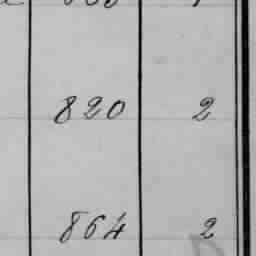 820 2
864 2